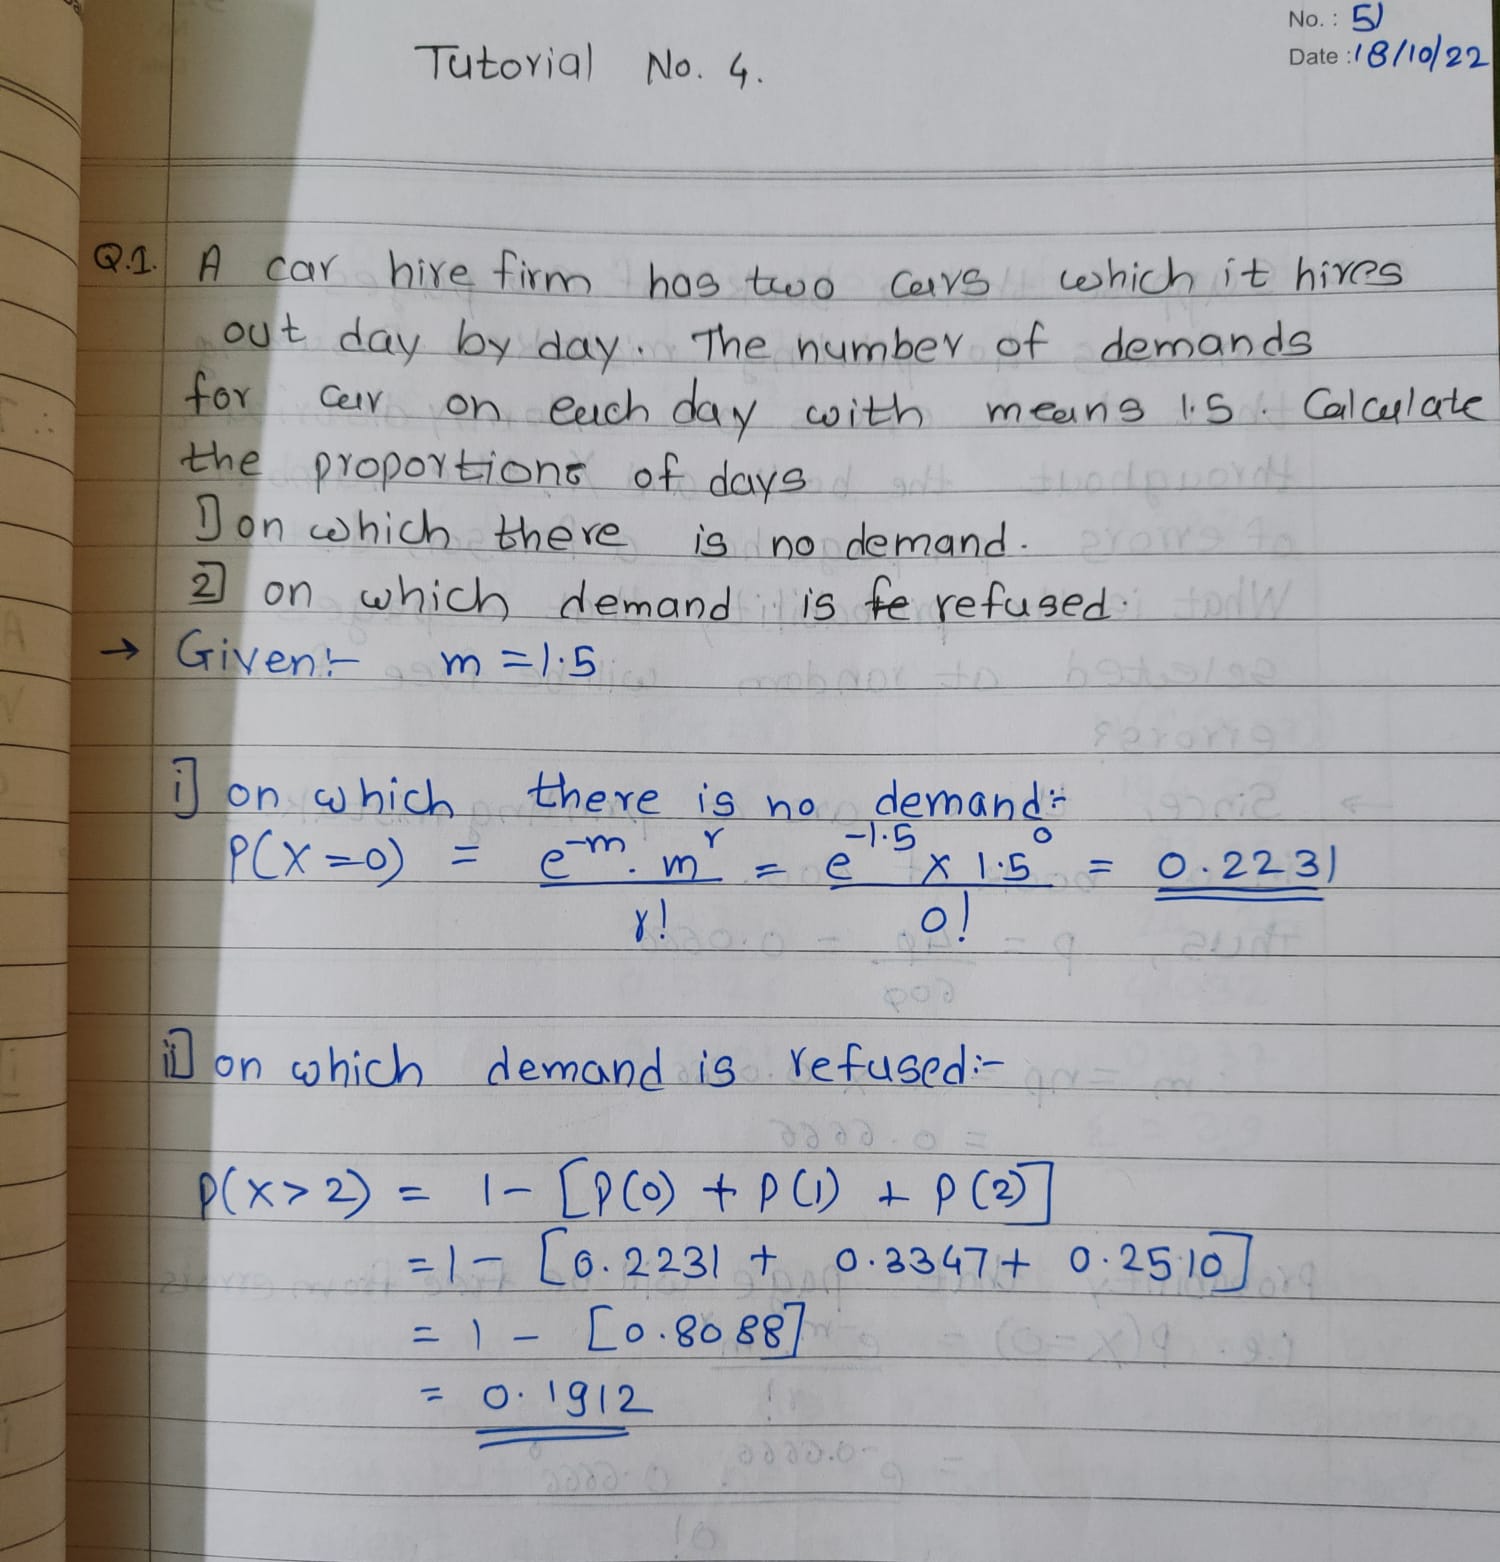 No. : 51
Date : 18/10/22
Tutorial No. 4.
Q.1. A car hire firm has two cars which it hires
out day by day. The number of demands
for car on each day with means 1.5. Calculate
the proportions of days
1] on which there is no demand.
2] on which demand is fe refused.
→ Given:- m = 1.5
i] on which there is no demand:-
P(X=0) = e^-m . m^r / r! = e^-1.5 × 1.5^0 / 0! = 0.2231
ii] on which demand is refused:-
P(X>2) = 1 - [P(0) + P(1) + P(2)]
= 1 - [0.2231 + 0.3347 + 0.2510]
= 1 - [0.8088]
= 0.1912